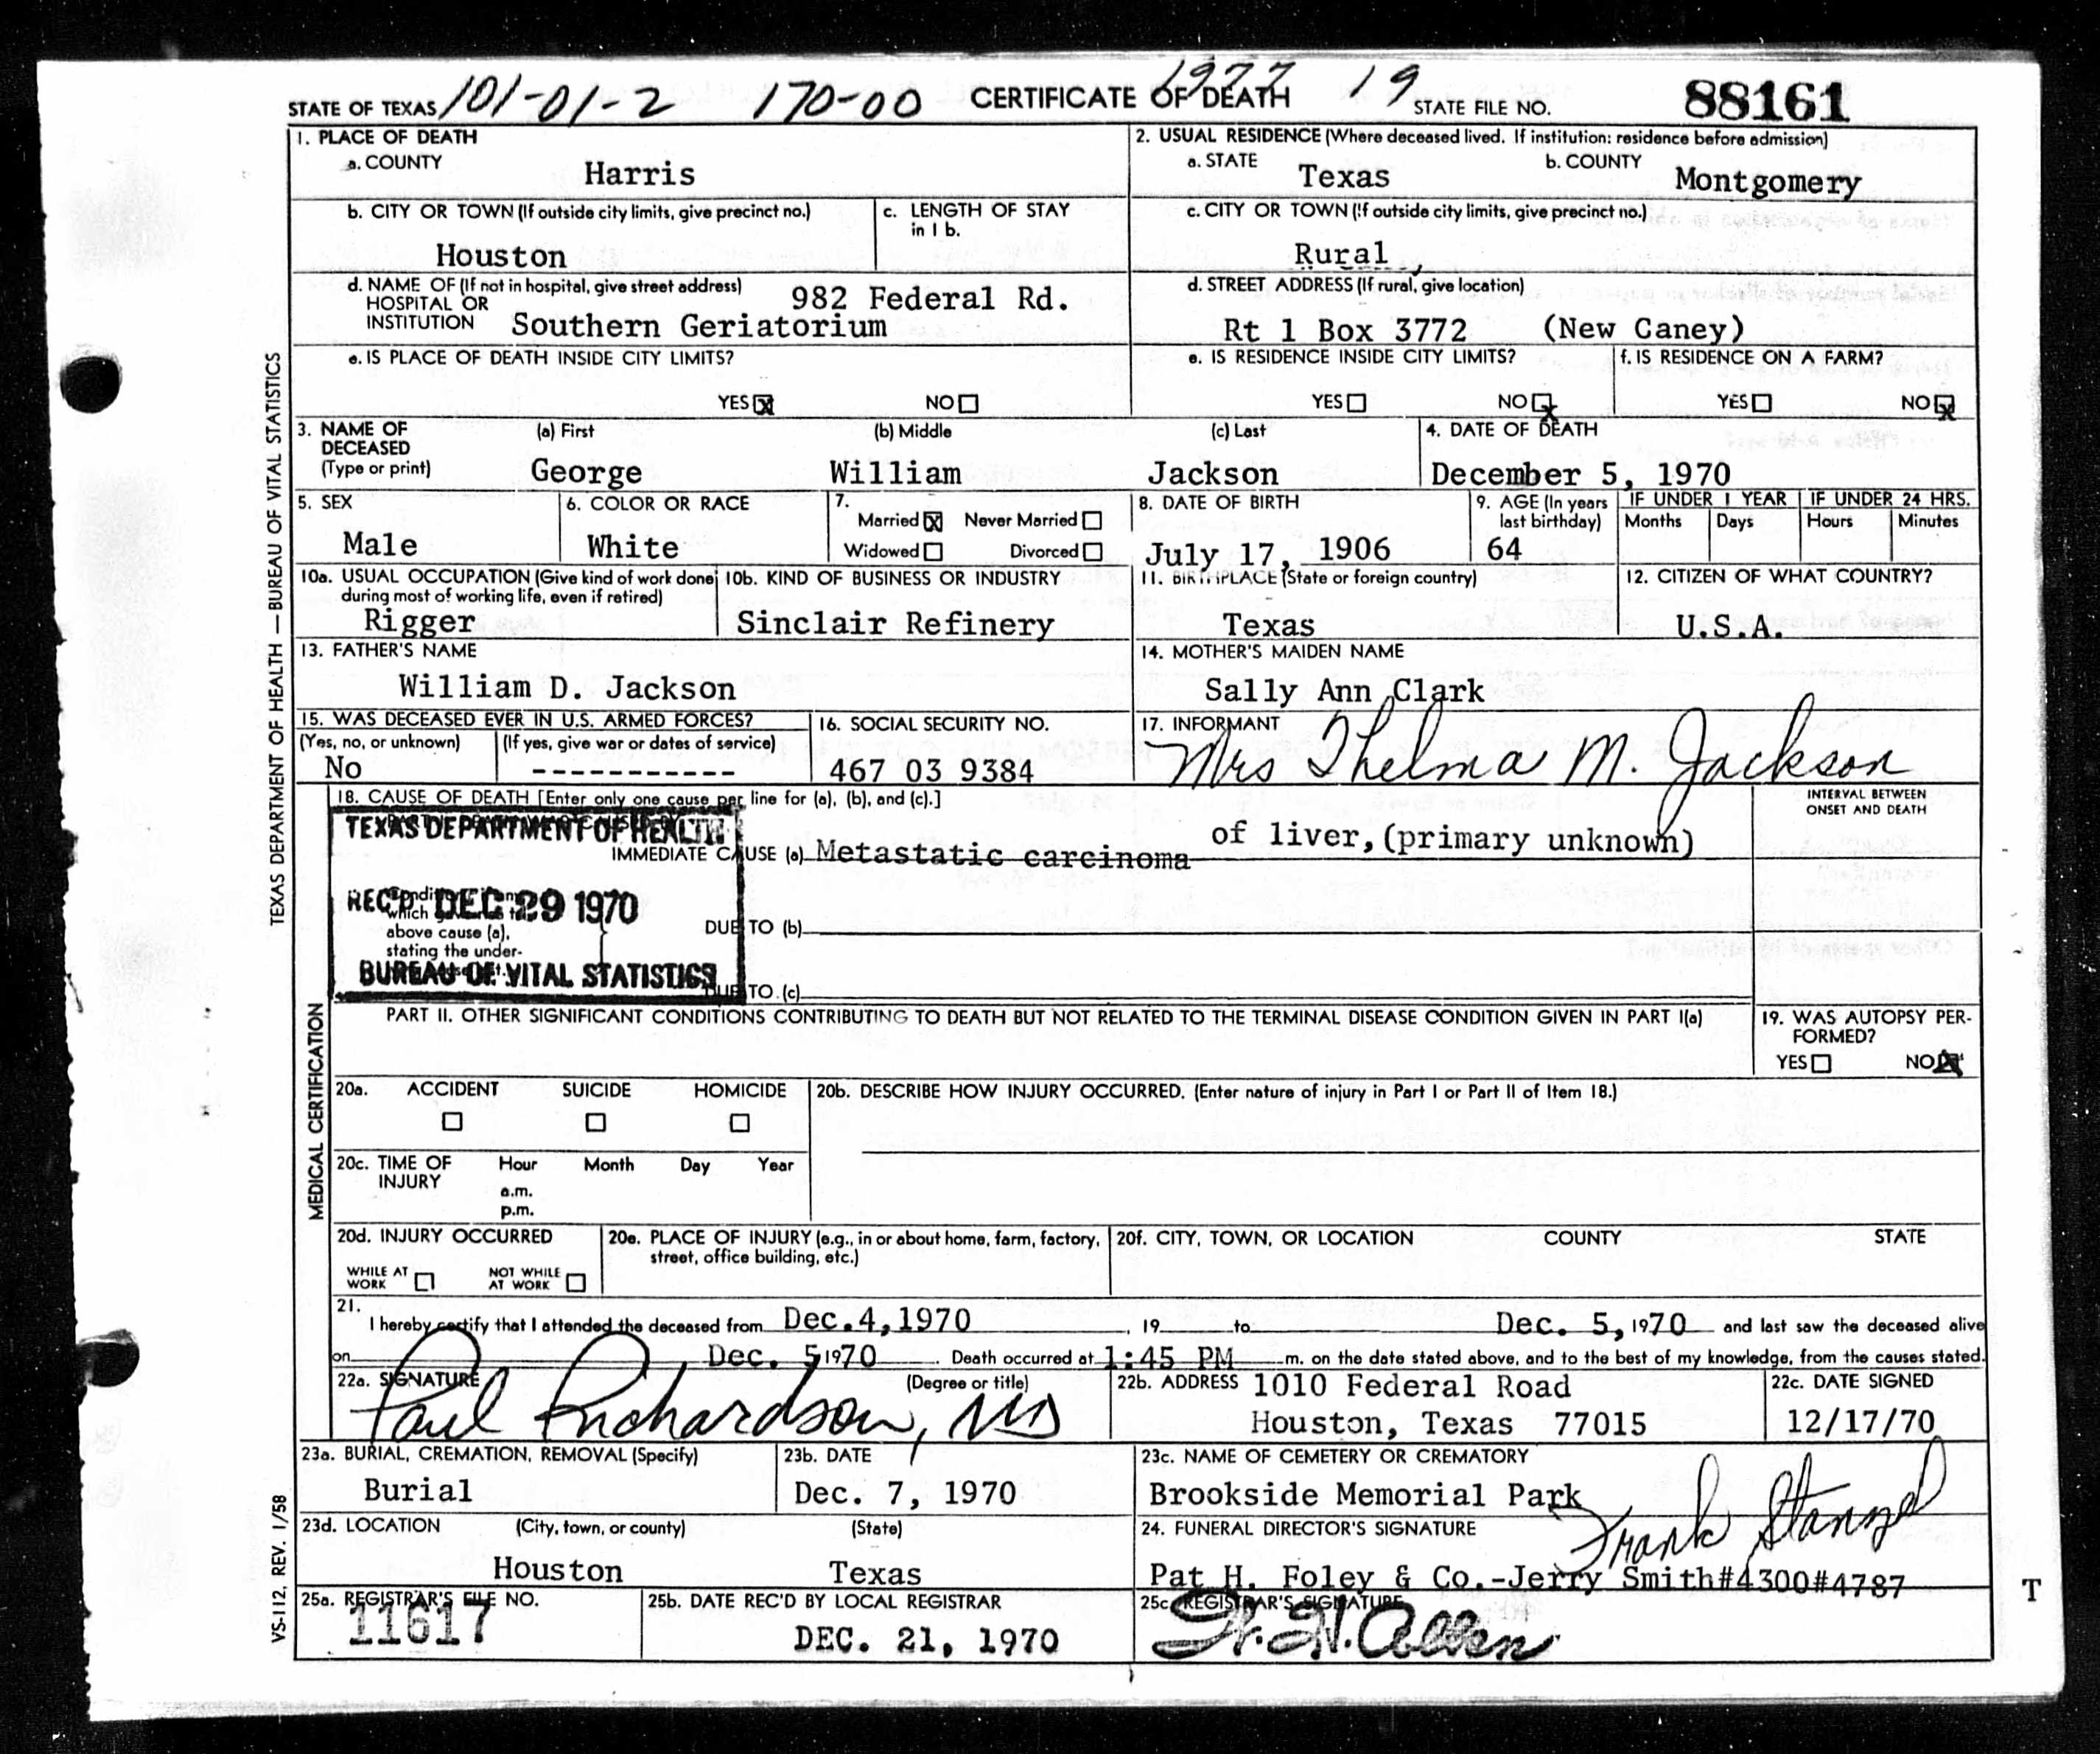 STATE OF TEXAS 101-01-2 170-00 CERTIFICATE OF DEATH 1977 19 STATE FILE NO. 88161
1. PLACE OF DEATH
a. COUNTY
Harris
2. USUAL RESIDENCE (Where deceased lived. If institution: residence before admission)
a. STATE Texas b. COUNTY Montgomery
b. CITY OR TOWN (If outside city limits, give precinct no.)
Houston
c. LENGTH OF STAY
in 1 b.
c. CITY OR TOWN (If outside city limits, give precinct no.)
Rural
d. NAME OF (If not in hospital, give street address)
HOSPITAL OR
INSTITUTION
982 Federal Rd.
Southern Geriatorium
d. STREET ADDRESS (If rural, give location)
Rt 1 Box 3772 (New Caney)
e. IS PLACE OF DEATH INSIDE CITY LIMITS?
YES x NO
e. IS RESIDENCE INSIDE CITY LIMITS?
YES NO x
f. IS RESIDENCE ON A FARM?
YES NO x
3. NAME OF
DECEASED
(Type or print)
(a) First (b) Middle (c) Last
George William Jackson
4. DATE OF DEATH
December 5, 1970
5. SEX
Male
6. COLOR OR RACE
White
7.
Married x Never Married
Widowed Divorced
8. DATE OF BIRTH
July 17, 1906
9. AGE (In years
last birthday)
64
IF UNDER 1 YEAR
Months Days
IF UNDER 24 HRS.
Hours Minutes
10a. USUAL OCCUPATION (Give kind of work done
during most of working life, even if retired)
Rigger
10b. KIND OF BUSINESS OR INDUSTRY
Sinclair Refinery
11. BIRTHPLACE (State or foreign country)
Texas
12. CITIZEN OF WHAT COUNTRY?
U.S.A.
13. FATHER'S NAME
William D. Jackson
14. MOTHER'S MAIDEN NAME
Sally Ann Clark
15. WAS DECEASED EVER IN U.S. ARMED FORCES?
(Yes, no, or unknown) (If yes, give war or dates of service)
No -----------
16. SOCIAL SECURITY NO.
467 03 9384
17. INFORMANT
Mrs Thelma M. Jackson
18. CAUSE OF DEATH [Enter only one cause per line for (a), (b), and (c).]
INTERVAL BETWEEN
ONSET AND DEATH
TEXAS DEPARTMENT OF HEALTH
IMMEDIATE CAUSE (a) Metastatic carcinoma of liver, (primary unknown)
REC'D DEC 29 1970
which
above cause (a),
stating the under-
BUREAU OF VITAL STATISTICS
DUE TO (b)
DUE TO (c)
PART II. OTHER SIGNIFICANT CONDITIONS CONTRIBUTING TO DEATH BUT NOT RELATED TO THE TERMINAL DISEASE CONDITION GIVEN IN PART I(a)
19. WAS AUTOPSY PER-
FORMED?
YES NO x
20a. ACCIDENT SUICIDE HOMICIDE
20b. DESCRIBE HOW INJURY OCCURRED. (Enter nature of injury in Part I or Part II of Item 18.)
20c. TIME OF
INJURY
Hour Month Day Year
a.m.
p.m.
20d. INJURY OCCURRED
WHILE AT
WORK
NOT WHILE
AT WORK
20e. PLACE OF INJURY (e.g., in or about home, farm, factory,
street, office building, etc.)
20f. CITY, TOWN, OR LOCATION COUNTY STATE
21.
I hereby certify that I attended the deceased from Dec.4,1970, 19 to Dec. 5, 1970 and last saw the deceased alive
on Dec. 5 1970. Death occurred at 1:45 PM m. on the date stated above, and to the best of my knowledge, from the causes stated.
22a. SIGNATURE (Degree or title)
Paul Richardson, MD
22b. ADDRESS 1010 Federal Road
Houston, Texas 77015
22c. DATE SIGNED
12/17/70
23a. BURIAL, CREMATION, REMOVAL (Specify)
Burial
23b. DATE
Dec. 7, 1970
23c. NAME OF CEMETERY OR CREMATORY
Brookside Memorial Park
23d. LOCATION (City, town, or county) (State)
Houston Texas
24. FUNERAL DIRECTOR'S SIGNATURE
Frank
Pat H. Foley & Co.-Jerry Smith#4300#4787
25a. REGISTRAR'S FILE NO.
11617
25b. DATE REC'D BY LOCAL REGISTRAR
DEC. 21, 1970
25c. REGISTRAR'S SIGNATURE
TEXAS DEPARTMENT OF HEALTH — BUREAU OF VITAL STATISTICS
MEDICAL CERTIFICATION
VS-112, REV. 1/58
T